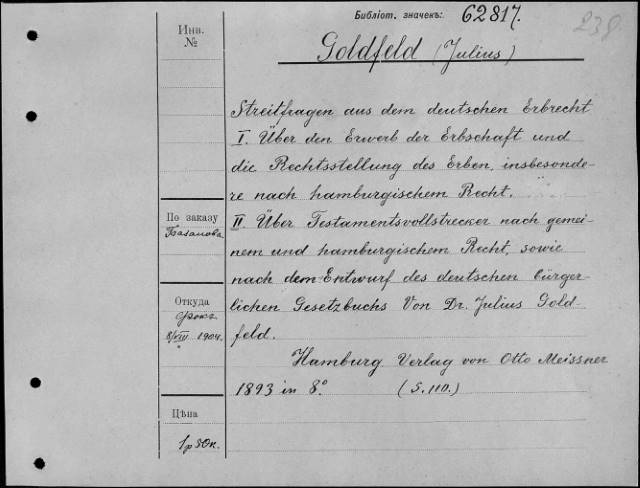 Библіот. значекъ: 62817.
238
Инв.
№
Goldfeld (Julius)
Streitfragen aus dem deutschen Erbrecht
I. Über den Erwerb der Erbschaft und
die Rechtsstellung des Erben, insbesonde-
re nach hamburgischem Recht.
По заказу
Базанова
II. Über Testamentsvollstrecker nach gemei-
nem und hamburgischem Recht, sowie
nach dem Entwurf des deutschen bürger-
lichen Gesetzbuchs Von Dr. Julius Gold-
feld.
Откуда
8/VIII 1904.
Hamburg Verlag von Otto Meissner
1893 in 8° (S. 110.)
Цѣна
1 р 80 к.